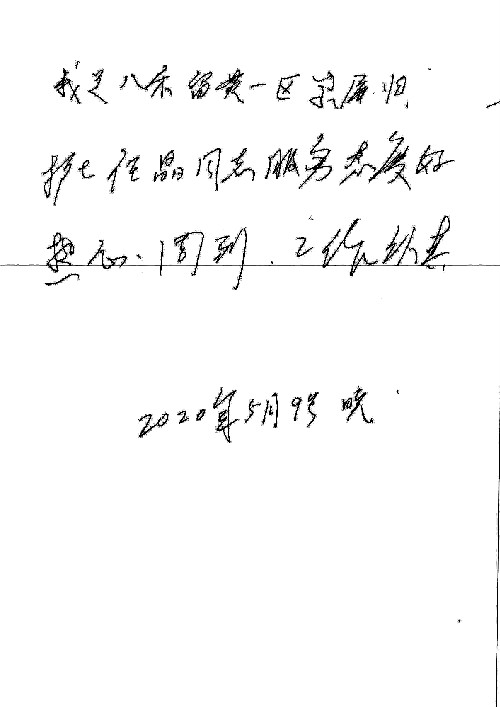 我是八示留黄一区 属归
护士任晶同志服务态度好
热心、周到、工作认真
2020年5月9号晚